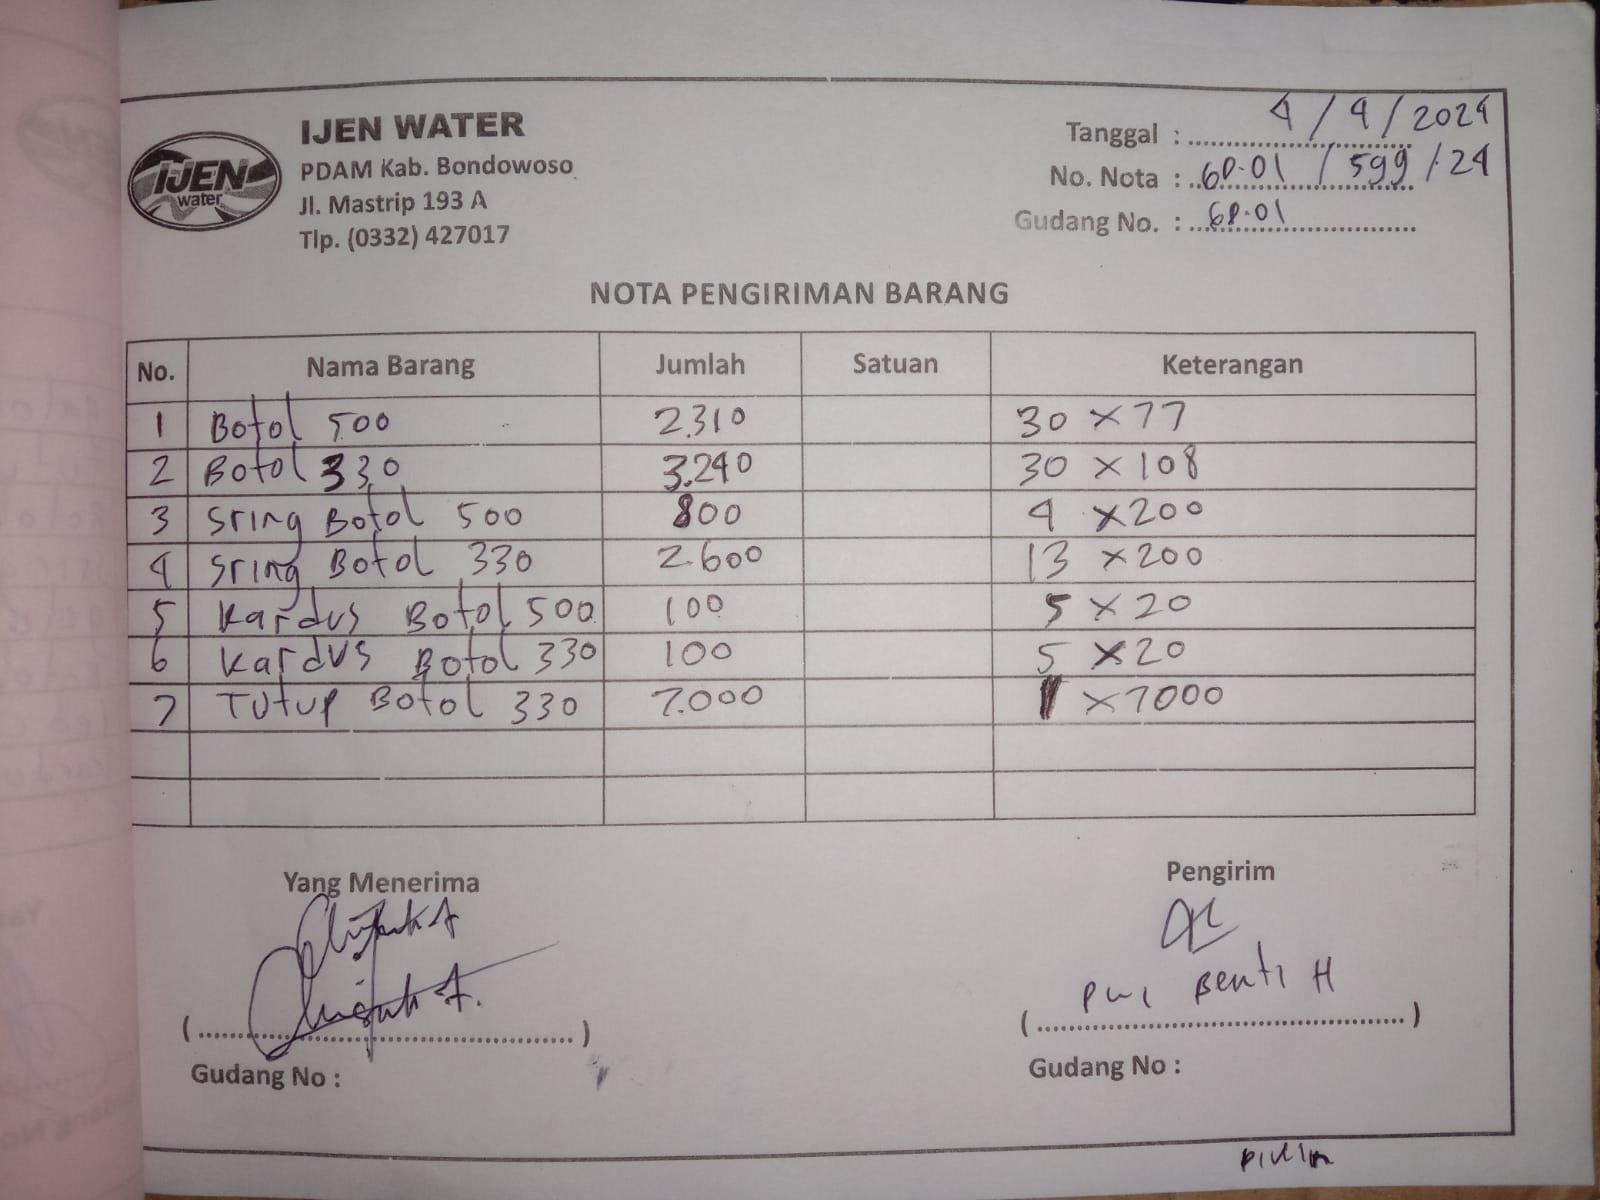 IJEN
water
IJEN WATER
PDAM Kab. Bondowoso
Jl. Mastrip 193 A
Tlp. (0332) 427017
Tanggal : 4 / 4 / 2024
No. Nota : 6P.01 / 599 / 24
Gudang No. : 6P.01
NOTA PENGIRIMAN BARANG
No. Nama Barang Jumlah Satuan Keterangan
1 Botol 500 2.310 30 x 77
2 Botol 330 3.240 30 x 108
3 Sring Botol 500 800 4 x 200
4 Sring Botol 330 2.600 13 x 200
5 Kardus Botol 500 100 5 x 20
6 Kardus Botol 330 100 5 x 20
7 Tutup Botol 330 7.000 1 x 7000
Yang Menerima
Pengirim
Pwi Benti H
Gudang No :
Gudang No :